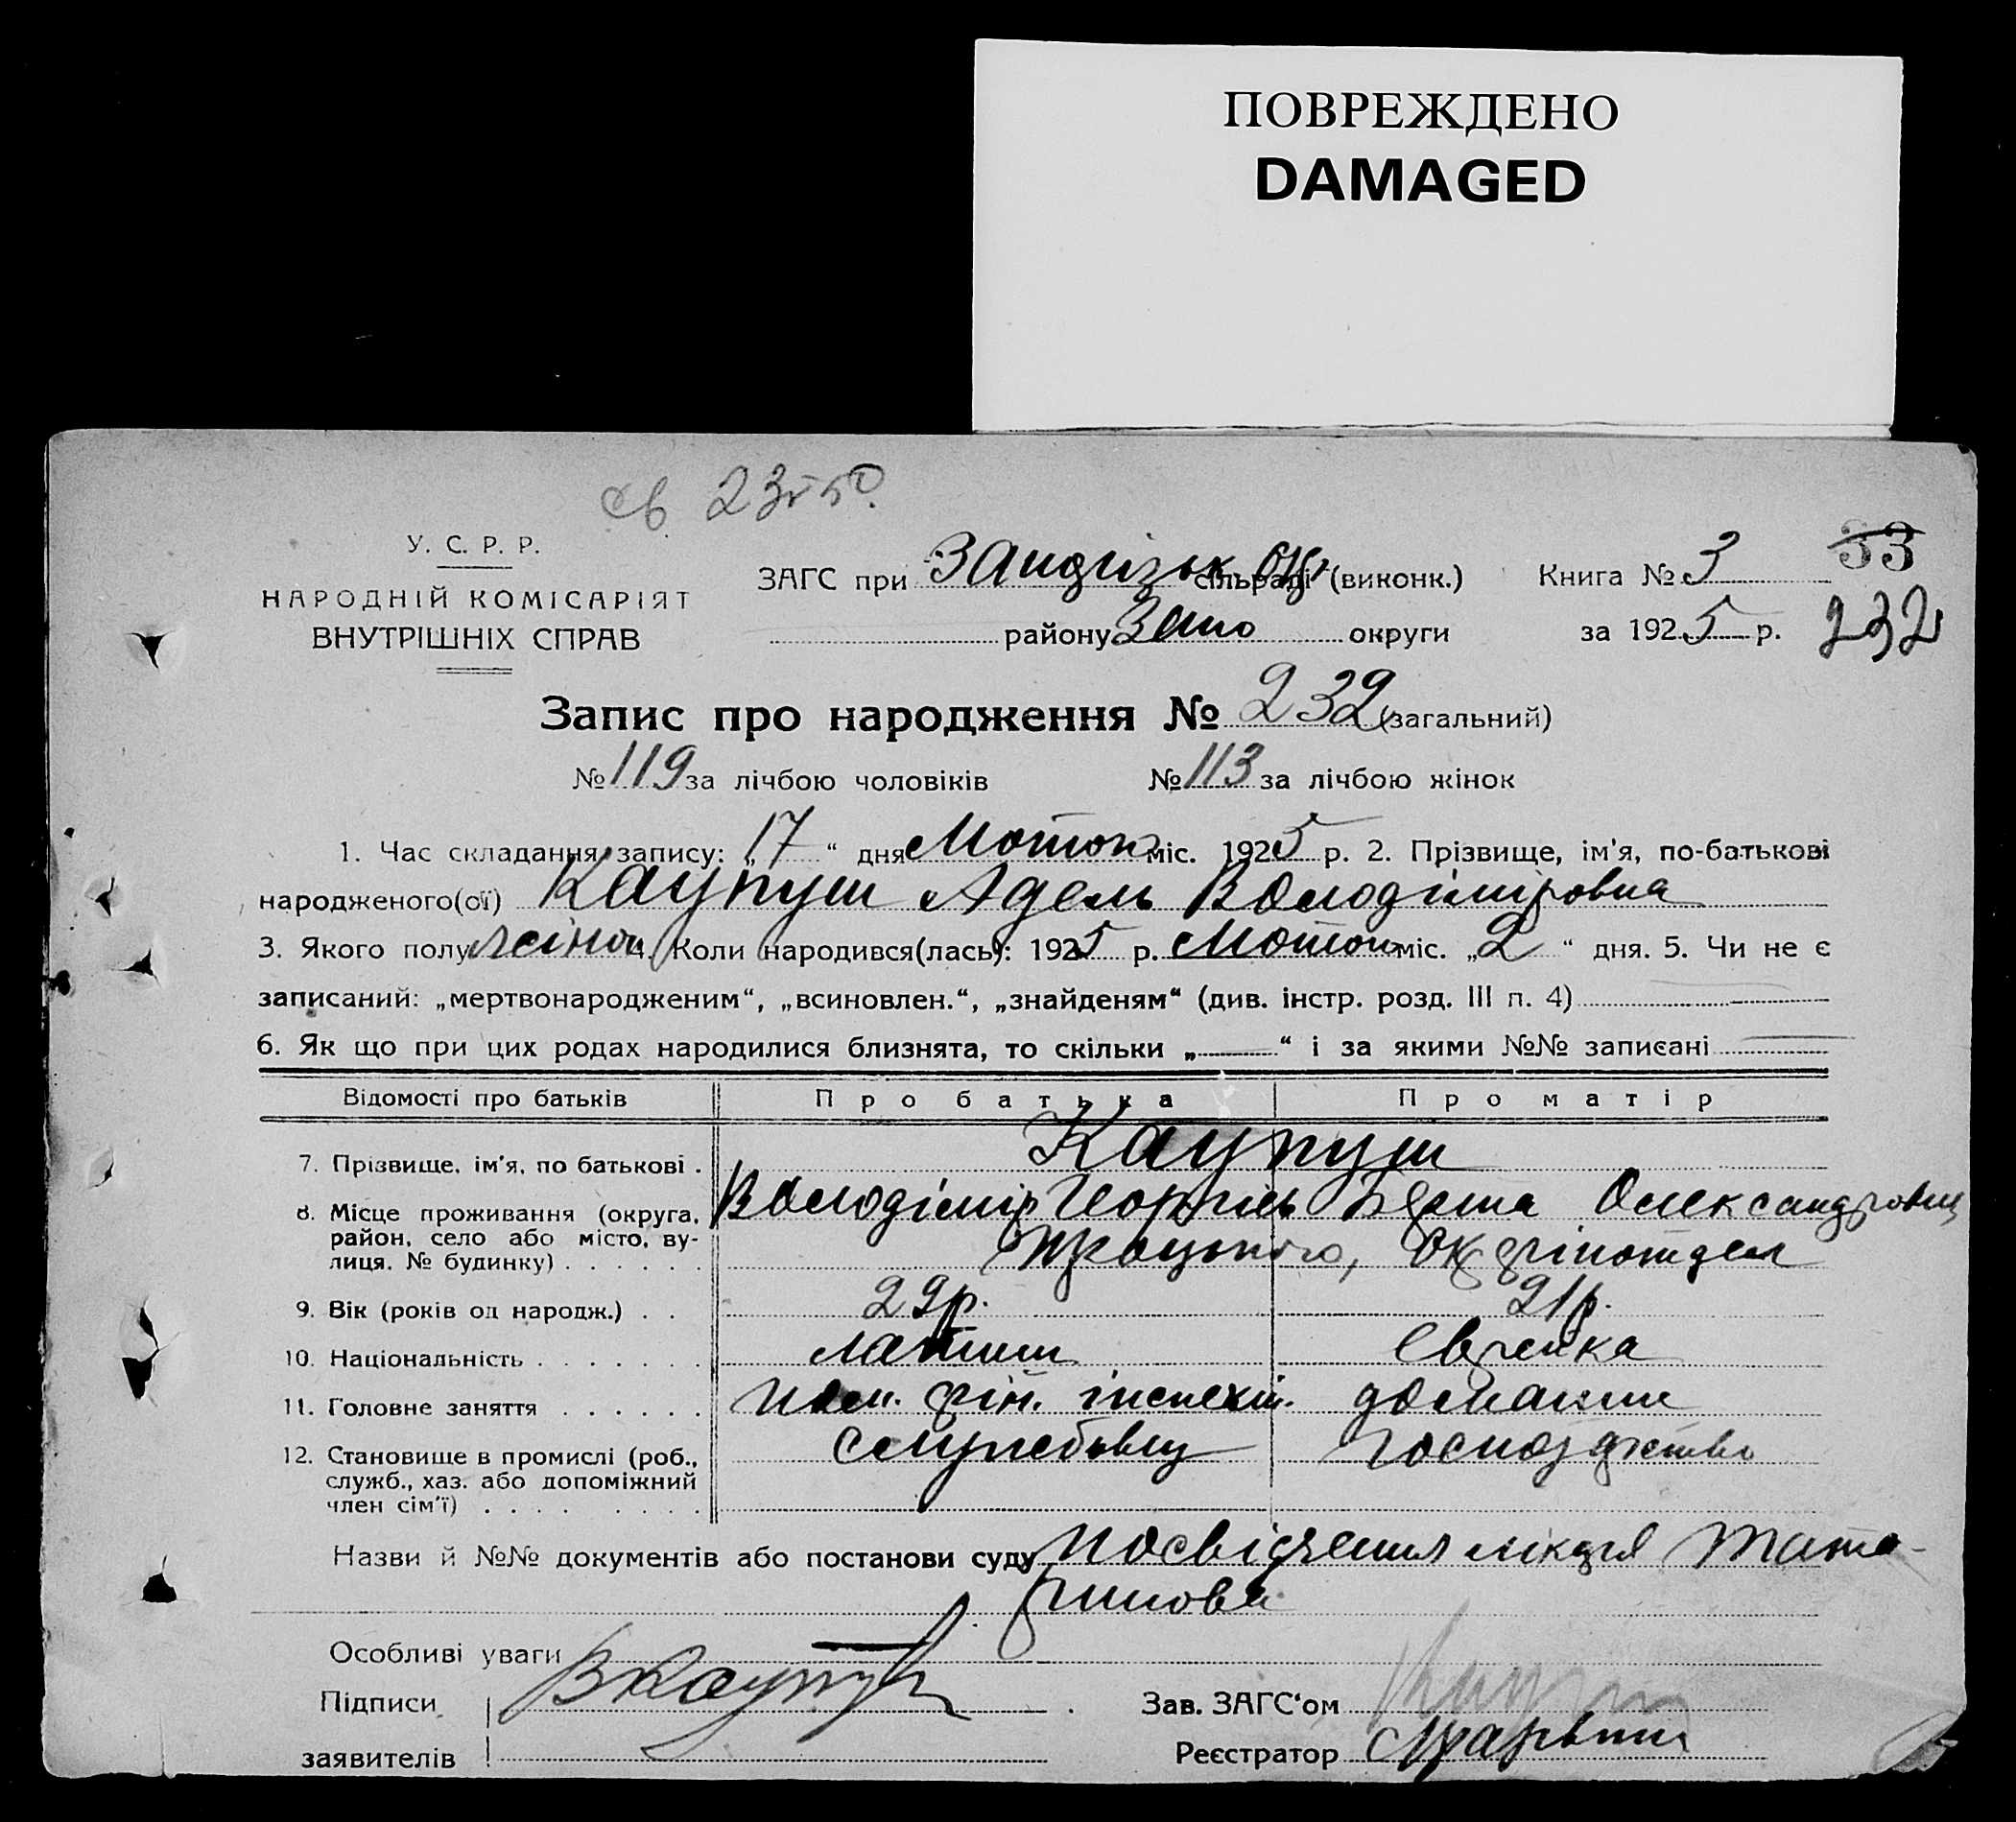 ПОВРЕЖДЕНО
DAMAGED
У. С. Р. Р.
НАРОДНІЙ КОМІСАРІЯТ
ВНУТРІШНІХ СПРАВ
ЗАГС при сільраді (виконк.)
району округи
Книга № 3
за 1925 р.
33
232
Запис про народження № 232 (загальний)
№ 119 за лічбою чоловіків № 113 за лічбою жінок
1. Час складання запису: „17“ дня міс. 1925 р. 2. Прізвище, ім'я, по-батькові
народженого(ої) Каупуш Адель Володімировна
3. Якого полу жіноч. 4. Коли народився(лась): 1925 р. міс. „2“ дня. 5. Чи не є
записаний: „мертвонародженим“, „всиновлен.“, „знайденям“ (див. інстр. розд. III п. 4)
6. Як що при цих родах народилися близнята, то скільки „—“ і за якими №№ записані
Відомості про батьків Про батька Про матір
7. Прізвище, ім'я, по батькові . Каупуш
Володімір Георгієв Берта Олександровна
8. Місце проживання (округа,
район, село або місто, ву-
лиця. № будинку) . . . . . . Троцького,
9. Вік (років од народж.) . . 29р. 21р.
10. Національність . . . . . . . латиш Еврейка
11. Головне заняття . . . . . . пом. фін. інспект. домашне
12. Становище в промислі (роб.,
служб., хаз. або допоміжний
член сім'ї) . . . . . . . . . службовец господарство
Назви й №№ документів або постанови суду посвідчення лікаря Тата-
ринова
Особливі уваги —
Підписи ВКаупуш
заявителів
Зав. ЗАГС'ом
Реєстратор